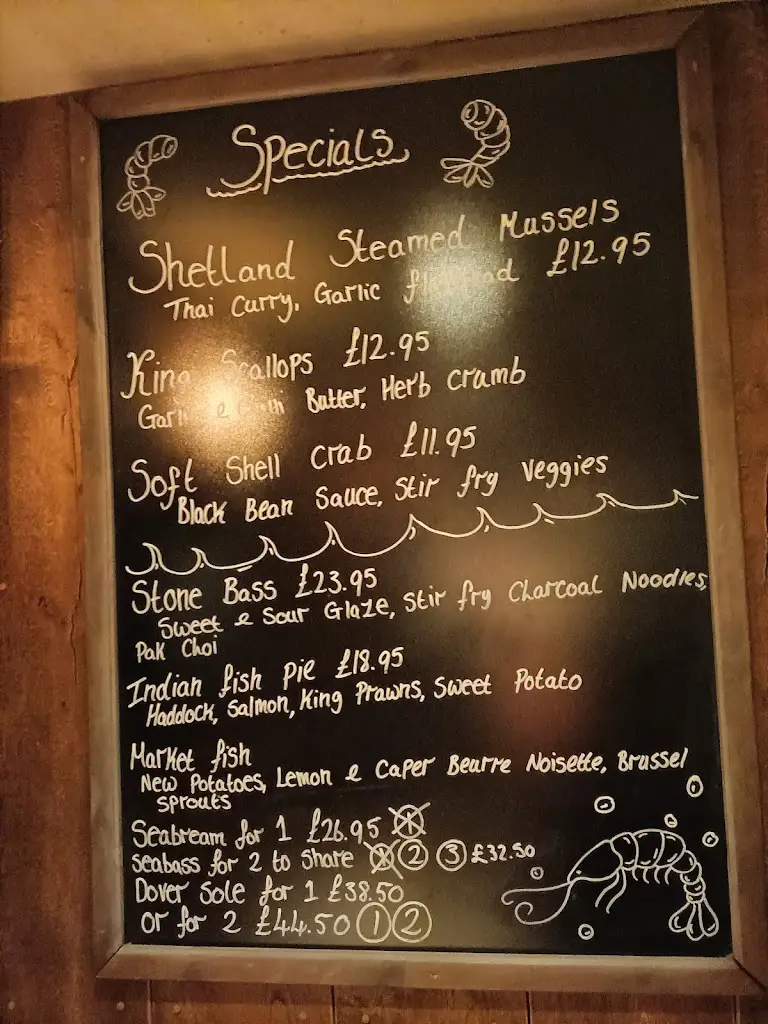 Specials
Shetland Steamed Mussels
Thai Curry, Garlic flatbread £12.95
King Scallops £12.95
Garlic & Butter, Herb crumb
Soft Shell Crab £11.95
Black Bean Sauce, Stir fry Veggies
Stone Bass £23.95
Sweet & Sour Glaze, Stir fry Charcoal Noodles,
Pak Choi
Indian fish Pie £18.95
Haddock, Salmon, King Prawns, Sweet Potato
Market fish
New Potatoes, Lemon & Caper Beurre Noisette, Brussel
sprouts
Seabream for 1 £26.95 1
Seabass for 2 to share 2 3 £32.50
Dover Sole for 1 £38.50
or for 2 £44.50 1 2